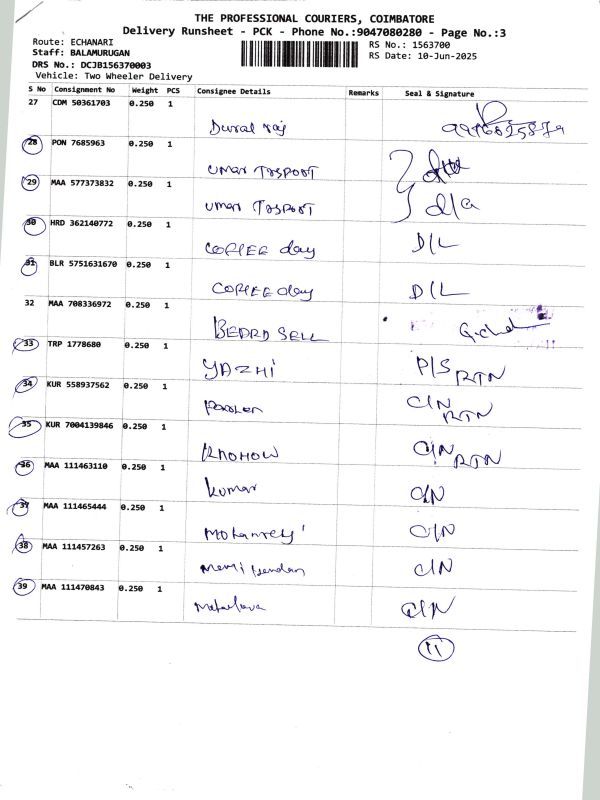 THE PROFESSIONAL COURIERS, COIMBATORE
Delivery Runsheet - PCK - Phone No.:9047080280 - Page No.:3
Route: ECHANARI
RS No.: 1563700
Staff: BALAMURUGAN
RS Date: 10-Jun-2025
DRS No.: DCJB156370003
Vehicle: Two Wheeler Delivery
S No Consignment No Weight PCS Consignee Details Remarks Seal & Signature
27 CDM 50361703 0.250 1
Durai raj
28 PON 7685963 0.250 1
umar TRSPORT
29 MAA 577373832 0.250 1
umar TRSPORT d/a
30 HRD 362140772 0.250 1
COFFEE day D/L
31 BLR 5751631670 0.250 1
COFFEE day D/L
32 MAA 708336972 0.250 1
33 TRP 1778680 0.250 1
YAZHI P/S RTN
34 KUR 558937562 0.250 1
C/N RTN
35 KUR 7004139846 0.250 1
C/N RTN
36 MAA 111463110 0.250 1
kumar C/N
37 MAA 111465444 0.250 1
C/N
38 MAA 111457263 0.250 1
C/N
39 MAA 111470843 0.250 1
C/N
11